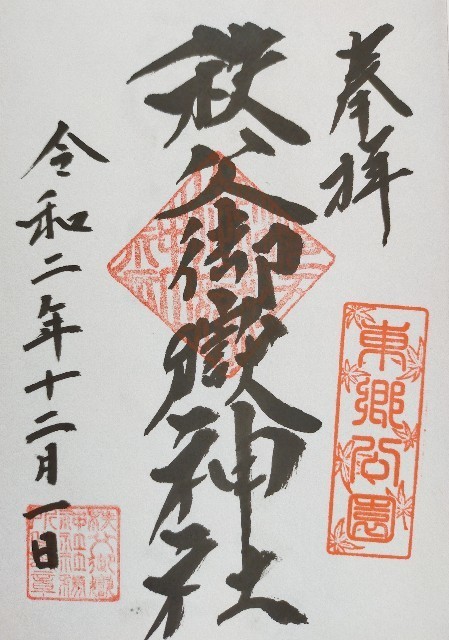 奉拝
東郷公園
秩父御嶽神社
令和二年十二月一日